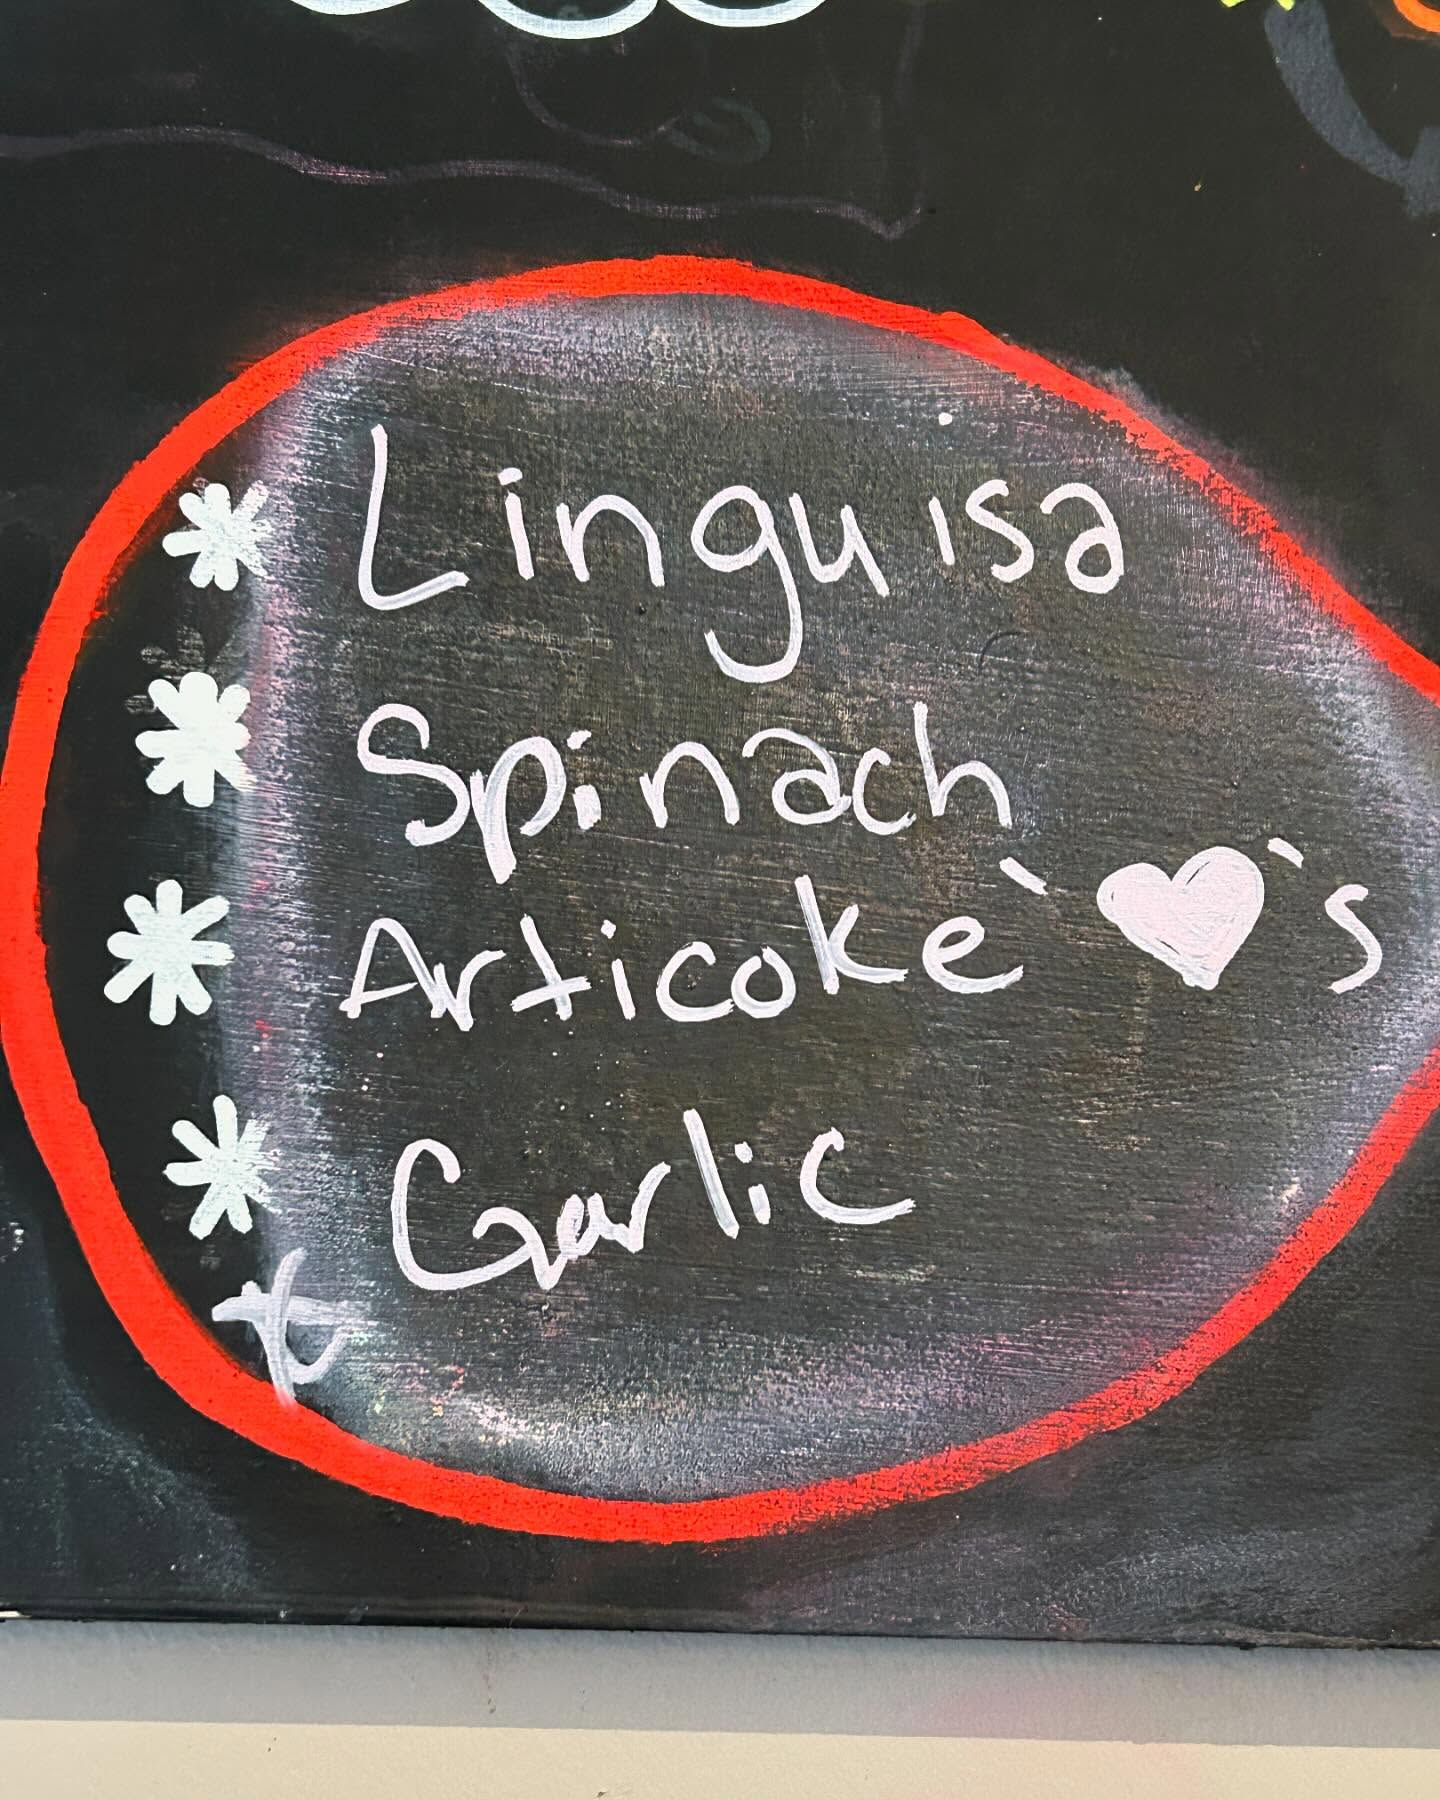 * Linguisa
* Spinach
* Articoke` ♥`s
* Garlic